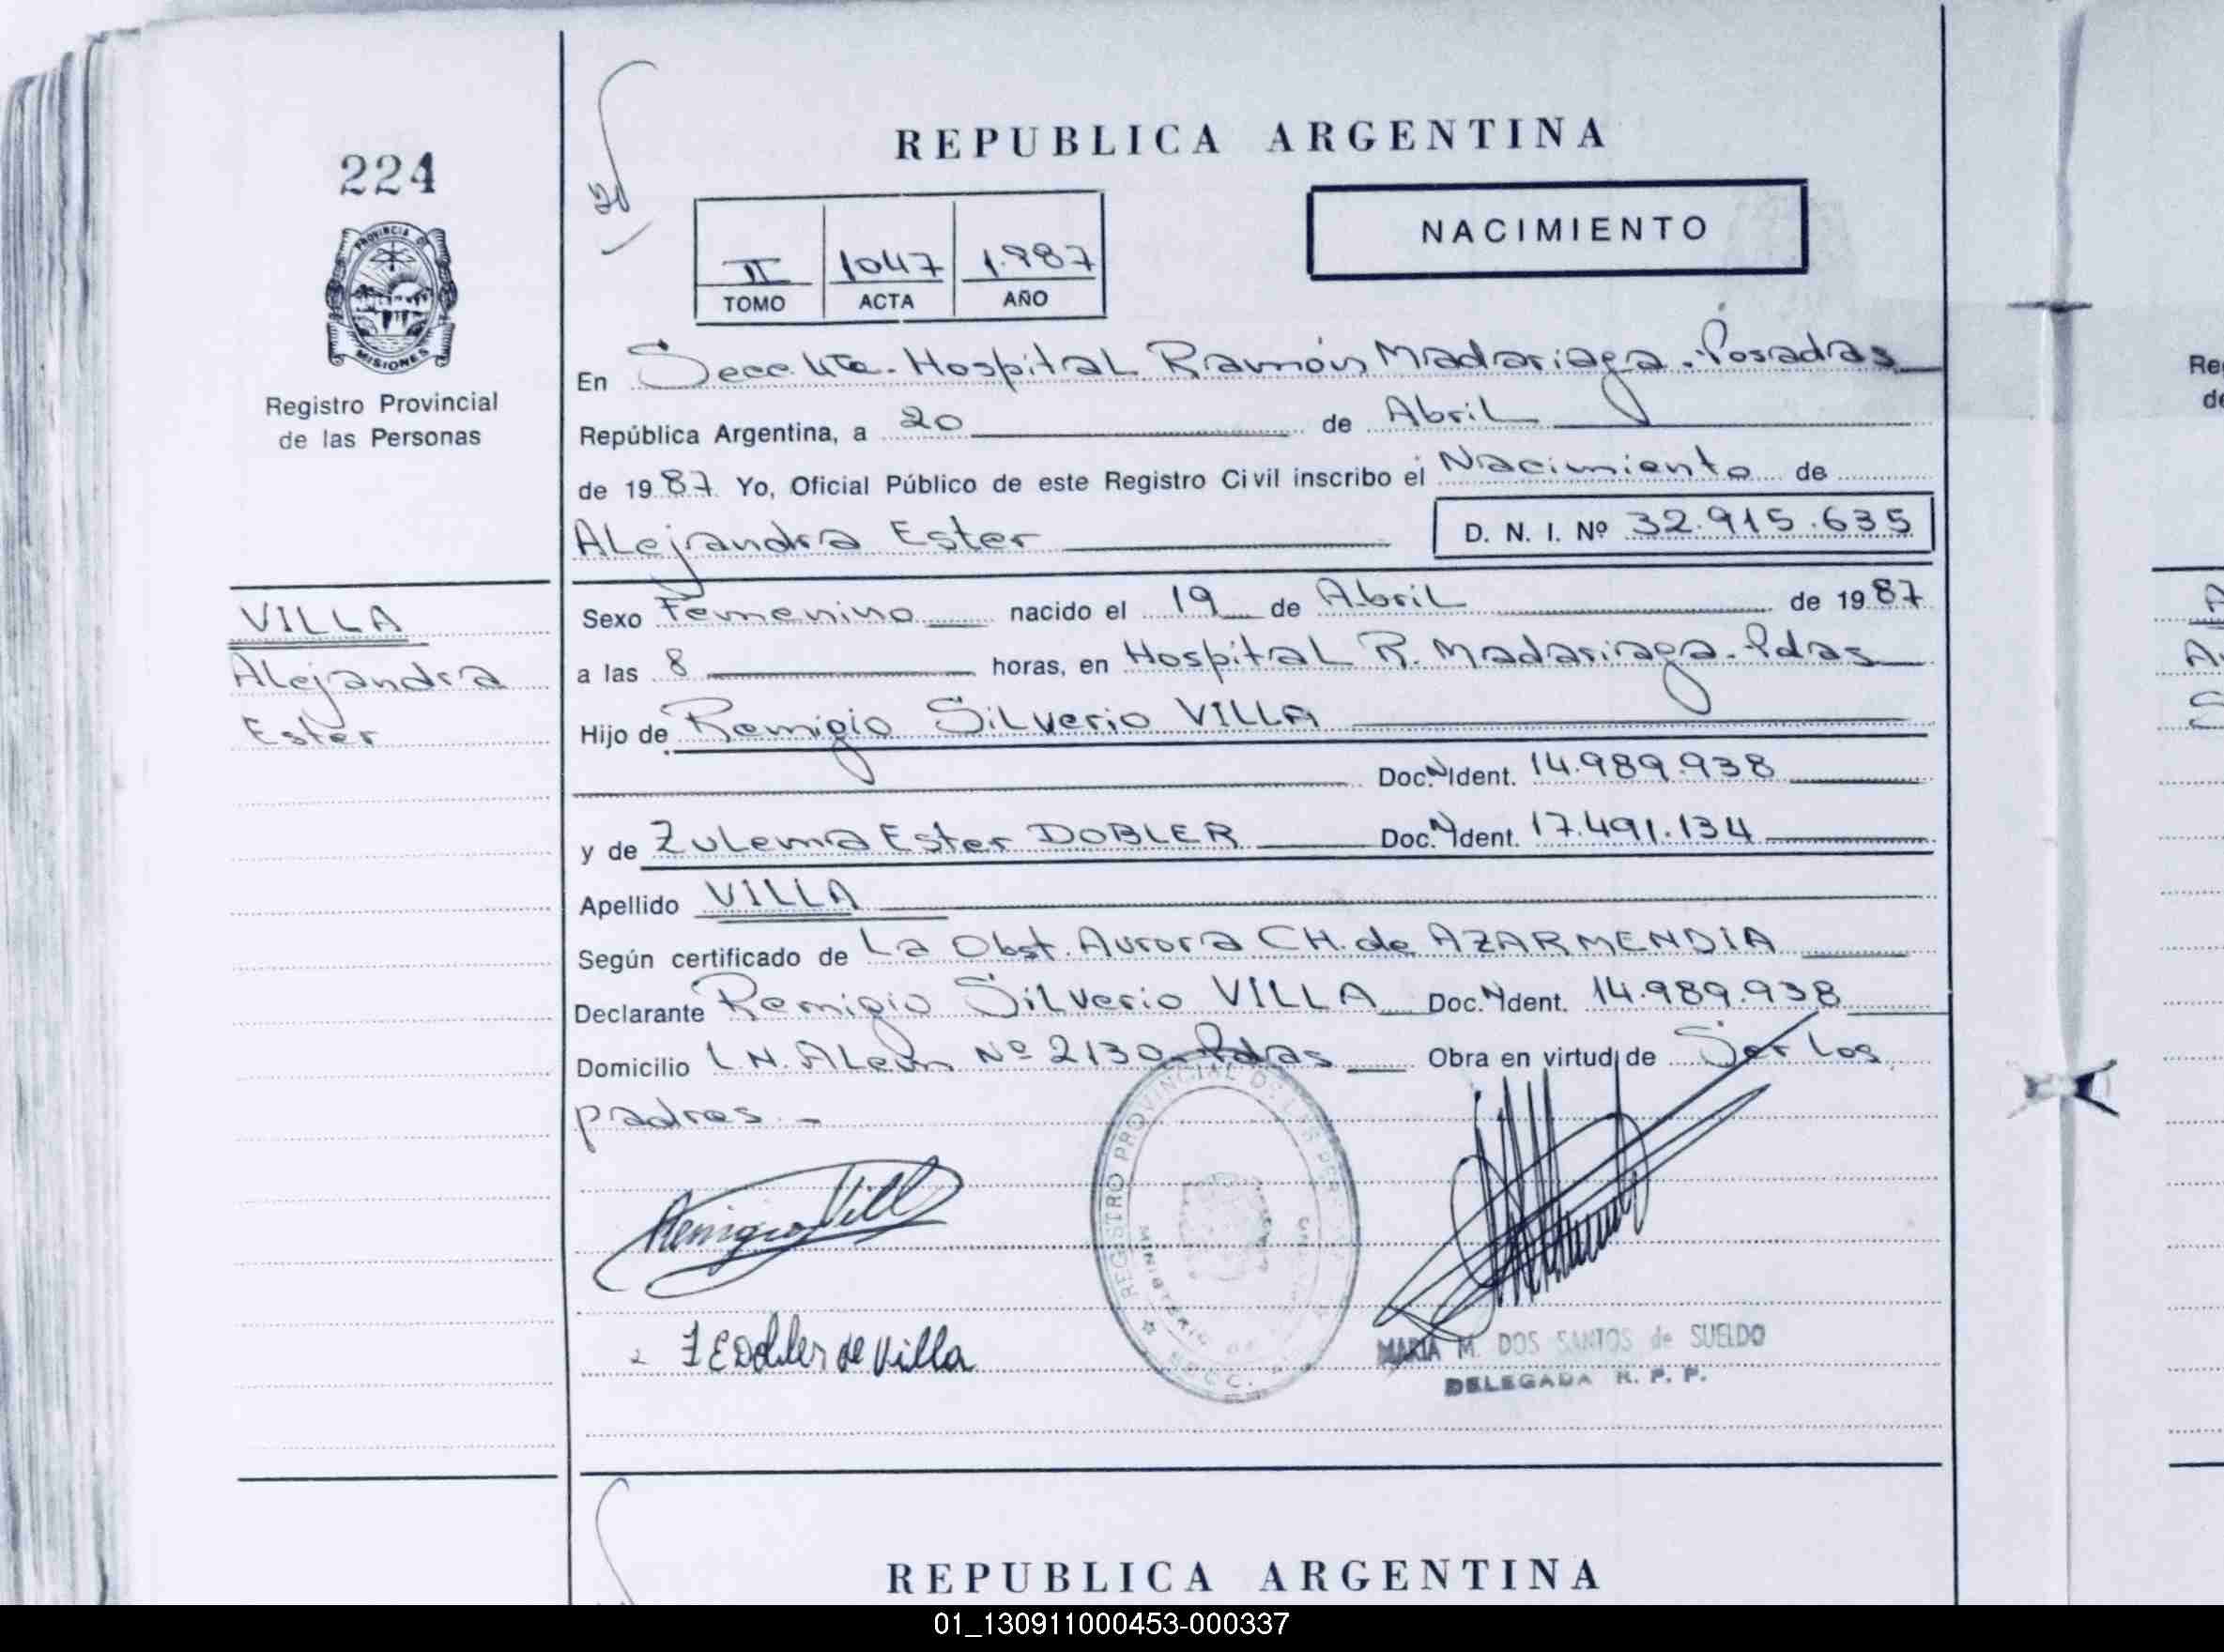 224
PROVINCIA DE
MISIONES
Registro Provincial
de las Personas
VILLA
Alejandra
Ester
REPUBLICA ARGENTINA
II 1047 1.987
TOMO ACTA AÑO
NACIMIENTO
En Secc 4ta. Hospital Ramón Madariaga. Posadas
República Argentina, a 20 de Abril
de 1987 Yo, Oficial Público de este Registro Civil inscribo el Nacimiento de
Alejandra Ester D. N. I. Nº 32.915.635
Sexo Femenino nacido el 19 de Abril de 1987
a las 8 horas, en Hospital R. Madariaga. Pdas
Hijo de Remigio Silverio VILLA
Doc. N Ident. 14.989.938
y de Zulema Ester DOBLER Doc. N Ident. 17.491.134
Apellido VILLA
Según certificado de La Obst. Aurora CH. de AZARMENDIA
Declarante Remigio Silverio VILLA Doc. N Ident. 14.989.938
Domicilio L.N. ALem Nº 2130. Pdas Obra en virtud de Ser los
padres.-
Remigio Villa
REGISTRO PROVINCIAL DE LAS PER
MINISTERIO DE
Z E Dobler de Villa
MARIA M. DOS SANTOS de SUELDO
DELEGADA R. P. P.
REPUBLICA ARGENTINA
Re
de
01_130911000453-000337